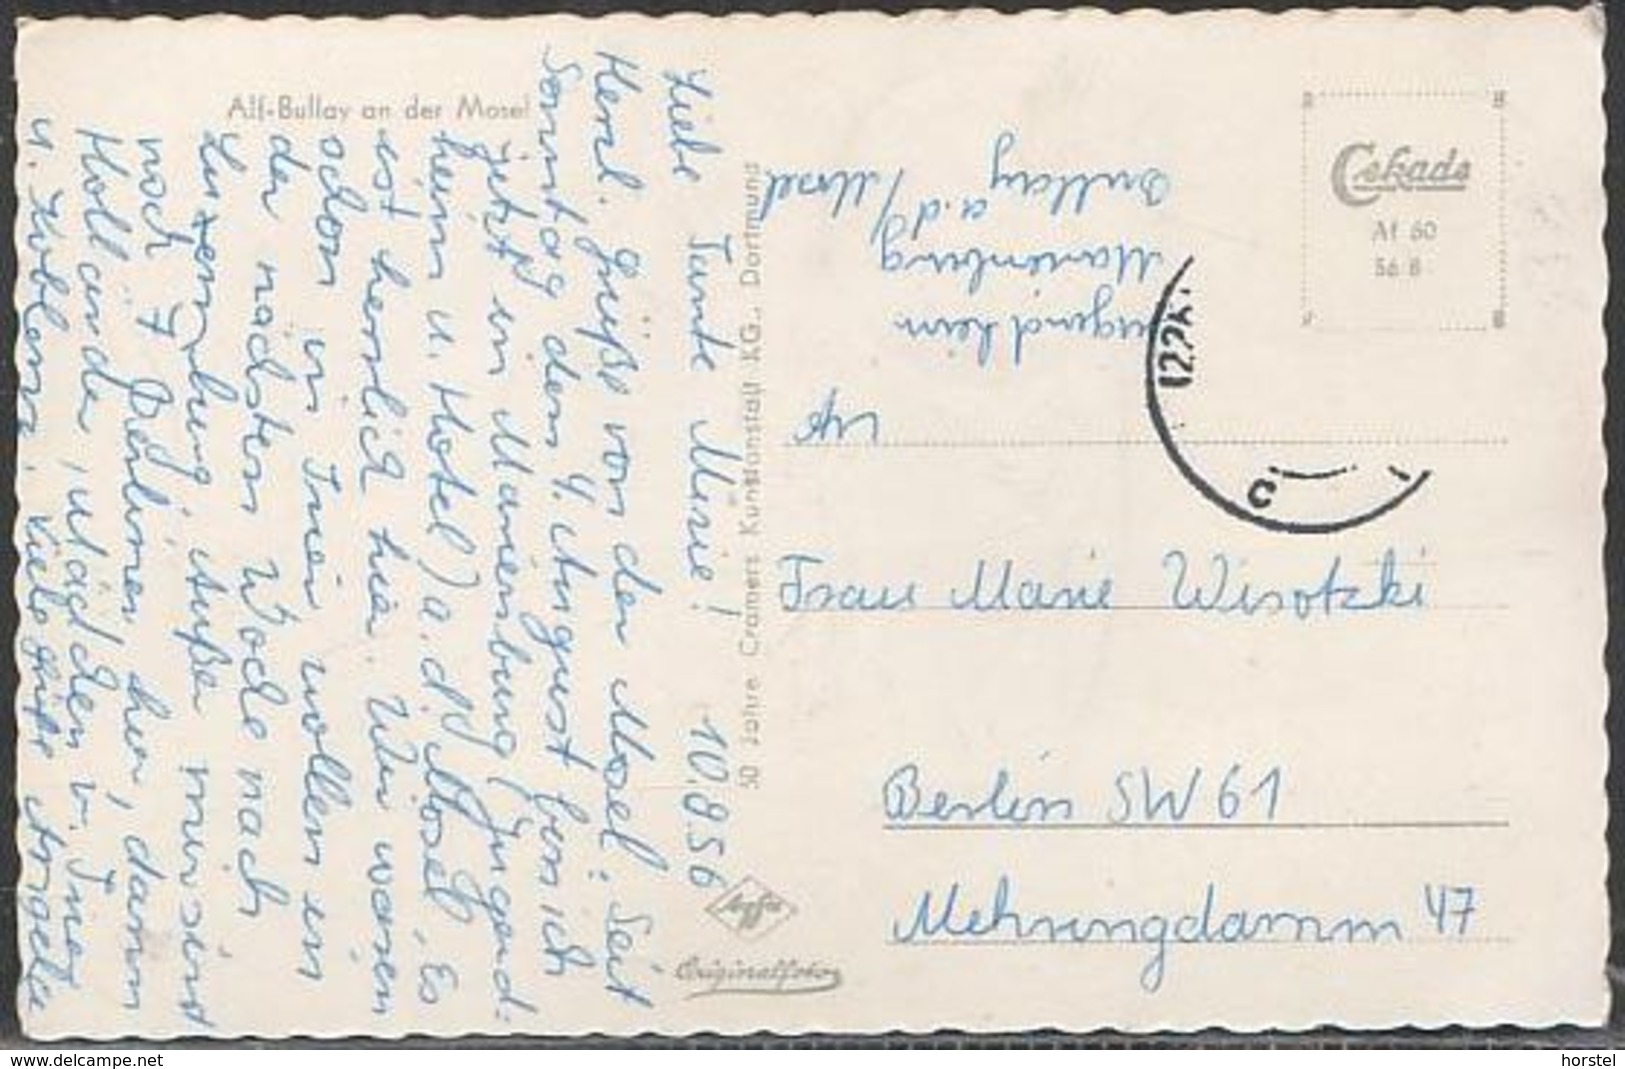 Alf-Bullay an der Mosel
Liebe Tante Miezie! 10.8.56
Herzl. Grüße von der Mosel. Seit
Sonntag dem 4. August bin ich
jetzt in Marienburg (Jugend-
heim u. Hotel) a. d. Mosel. Es
ist herrlich hier. Wir waren
schon in Trier wollen in
der nächsten Woche nach
Luxemburg. Außer mir sind
noch 7 Berliner hier, dann
Holländer, Mädchen v. Trier
u. Koblenz. Viele Grüße Angelika
50 Jahre Cramers Kunstanstalt KG., Dortmund
Agfa
Originalfoto
Cekade
Af 60
56 8
Jugendheim
Marienburg
Bullay a.d/Mosel
12.2
Frau Marie Wisotzki
Berlin SW 61
Mehringdamm 47
www.delcampe.net
horstel